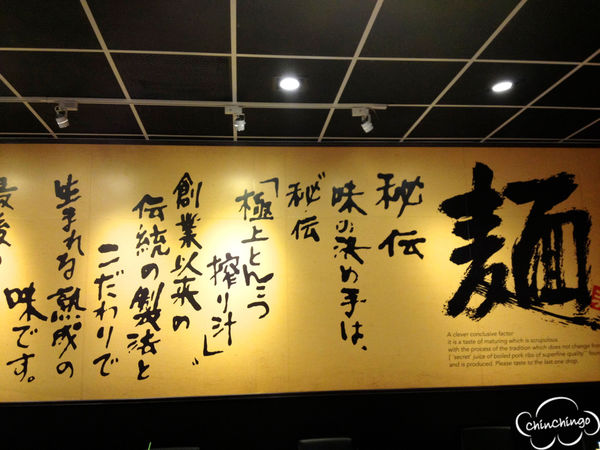 麺
秘伝
味の決め手は、
秘伝
「極上とんこつ
搾り汁」
創業以来の
伝統の製法と
こだわりで
生まれる熟成の
味です。
最後の
A clever conclusive factor
it is a taste of maturing which is scrupulous
with the process of the tradition which does not change from
[ 'secret' juice of boiled pork ribs of superfine quality"
and is produced. Please taste to the last one drop.
chinchingo